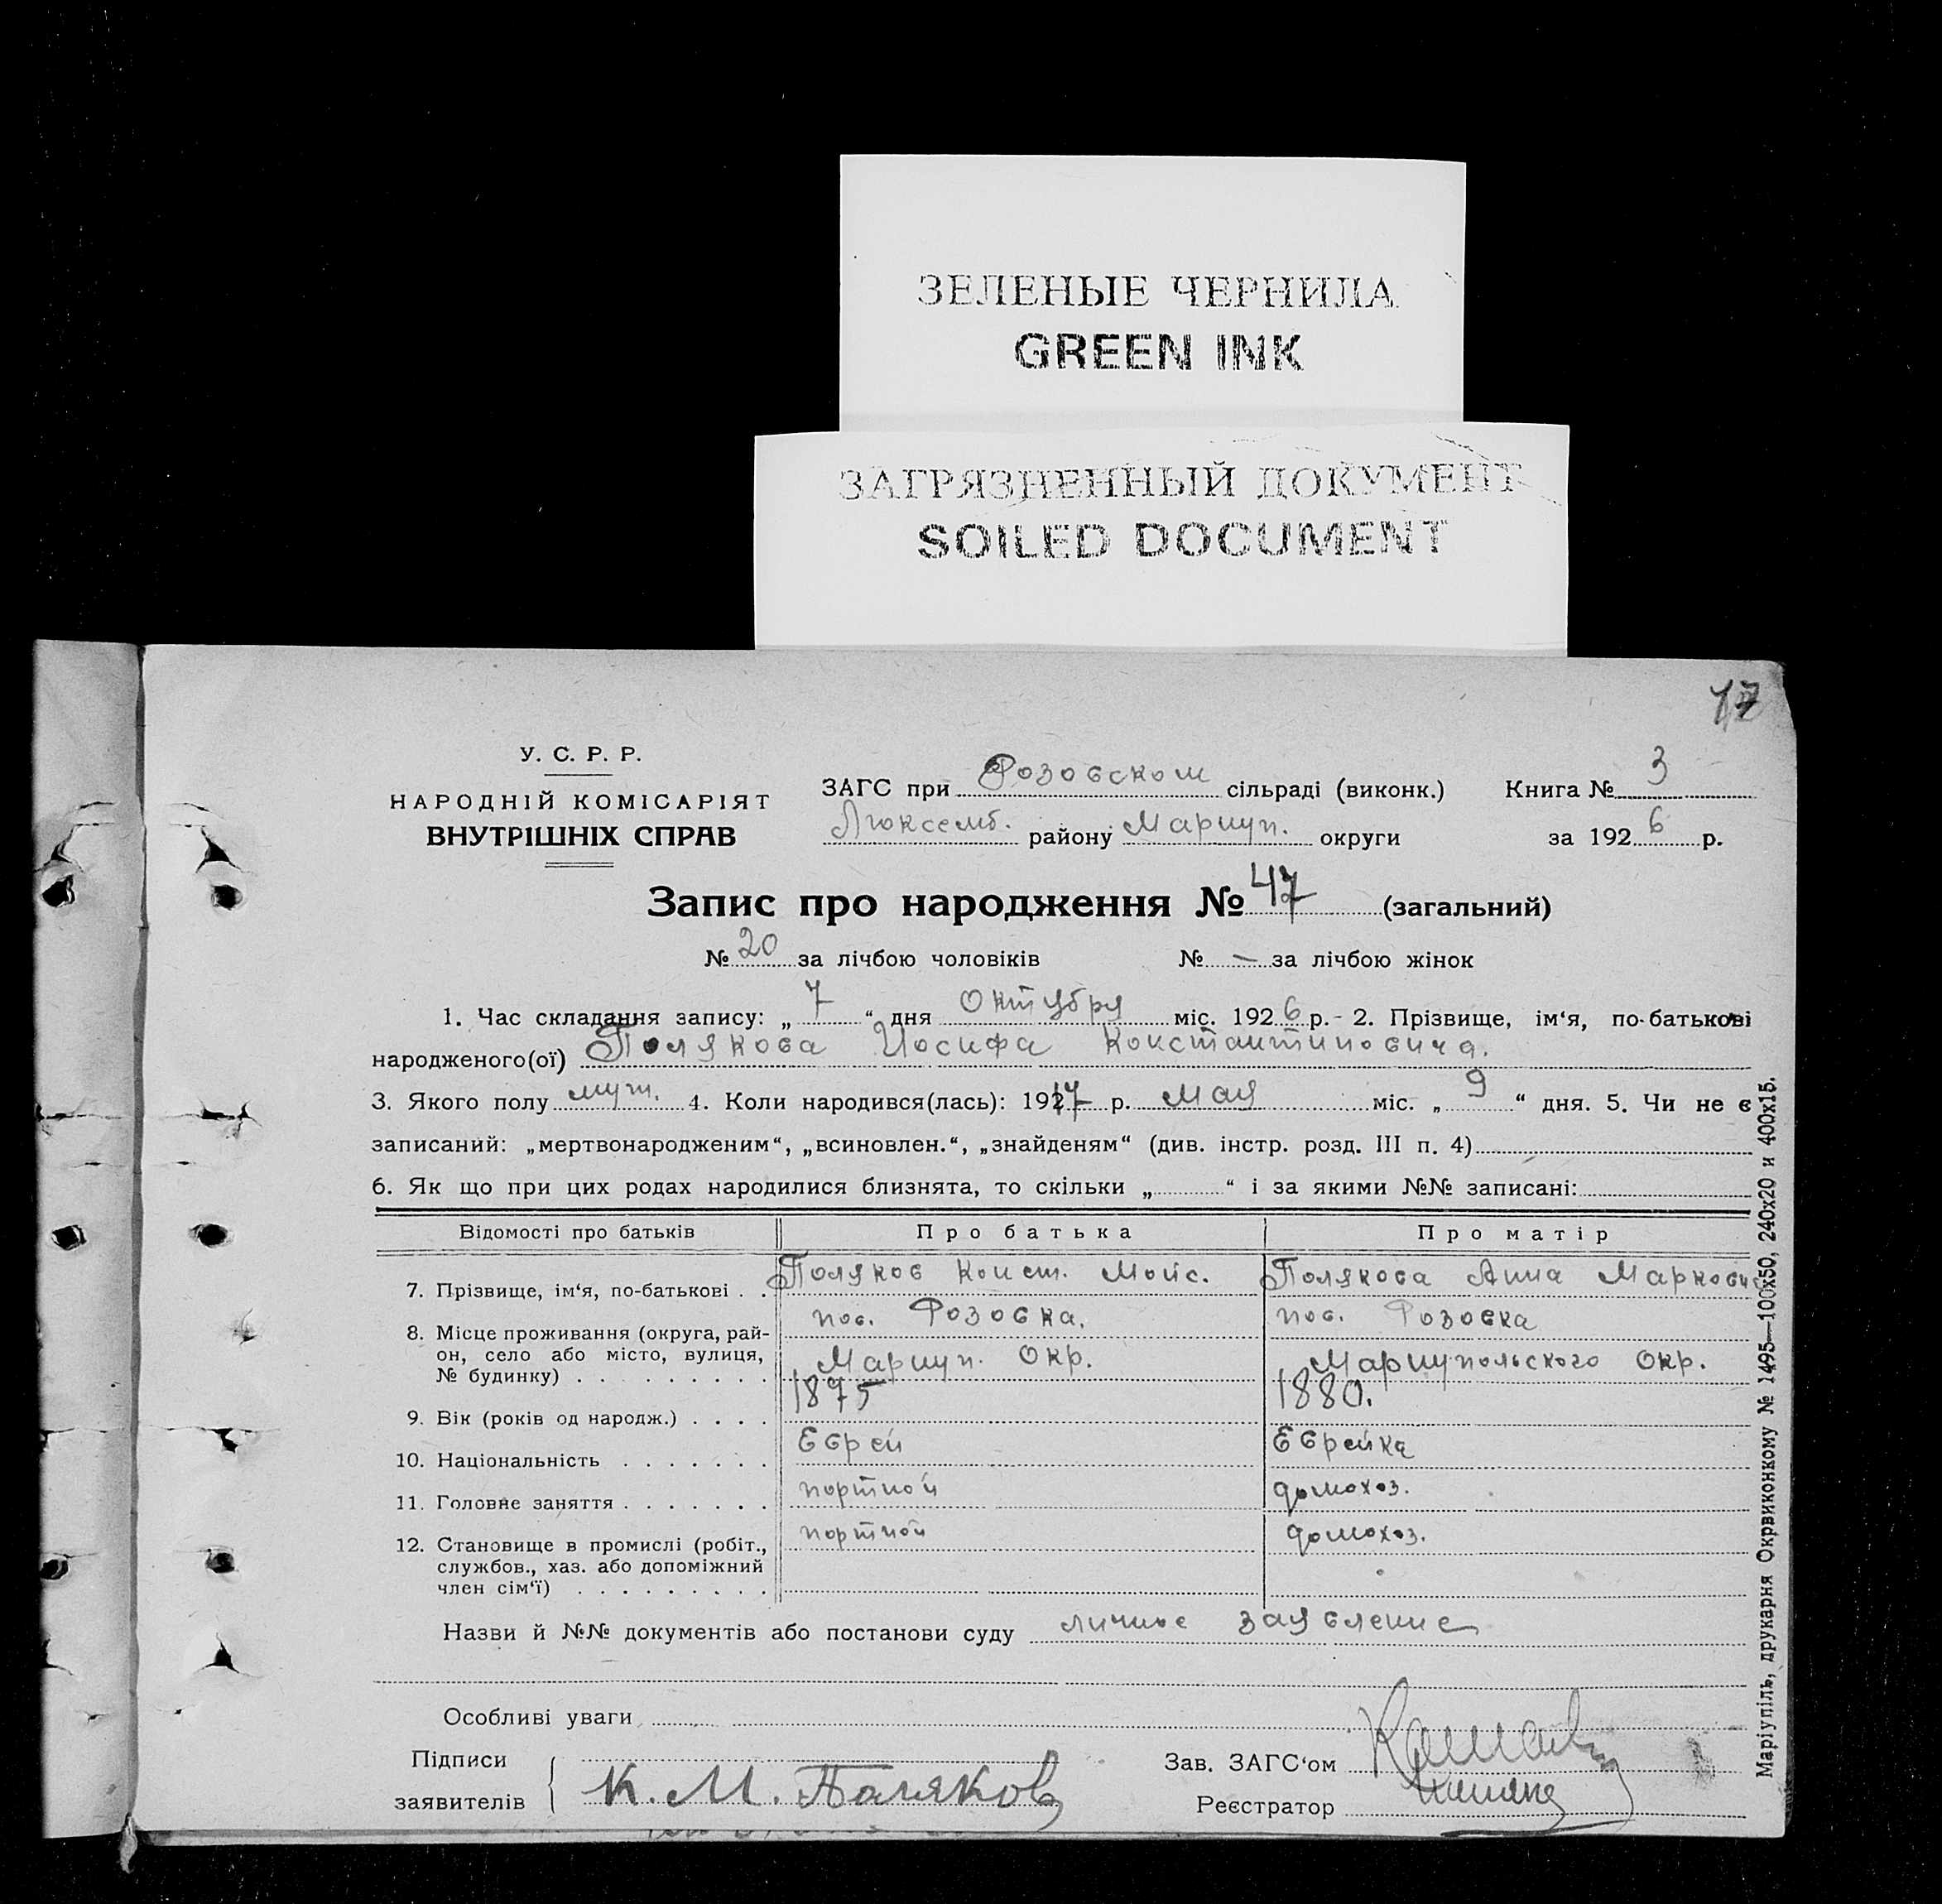 ЗЕЛЕНЫЕ ЧЕРНИЛА
GREEN INK
ЗАГРЯЗНЕННЫЙ ДОКУМЕНТ
SOILED DOCUMENT
17
У. С. Р. Р.
НАРОДНІЙ КОМІСАРІЯТ
ВНУТРІШНІХ СПРАВ
ЗАГС при Розовском сільраді (виконк.) Книга № 3
Люксемб. району Мариуп. округи за 1926 р.
Запис про народження № 47 (загальний)
№ 20 за лічбою чоловіків № — за лічбою жінок
1. Час складання запису: „ 7 “ дня Октября міс. 1926 р.- 2. Прізвище, ім‘я, по-батькові
народженого(ої) Полякова Иосифа Константиновича.
3. Якого полу муж. 4. Коли народився(лась): 1917 р. Мая міс. „ 9 “ дня. 5. Чи не є
записаний: „мертвонародженим“, „всиновлен.“, „знайденям“ (див. інстр. розд. III п. 4)
6. Як що при цих родах народилися близнята, то скільки „ “ і за якими №№ записані:
Відомості про батьків Про батька Про матір
7. Прізвище, ім‘я, по-батькові . . Поляков Конст. Моис. Полякова Анна Марковн
8. Місце проживання (округа, рай- пос. Розовка. пос. Розовка
он, село або місто, вулиця, Мариуп. Окр. Мариупольского Окр.
№ будинку) . . . . . . . . .
9. Вік (років од народж.) . . . . 1875 1880.
10. Національність . . . . . . . Еврей Еврейка
11. Головне заняття . . . . . . . портной домохоз.
12. Становище в промислі (робіт., портной домохоз.
службов., хаз. або допоміжний
член сім‘ї) . . . . . . . . .
Назви й №№ документів або постанови суду личное заявление
Особливі уваги
Підписи
заявителів К. М. Паляков
Зав. ЗАГС‘ом
Реєстратор
Маріупіль, друкарня Окрвиконкому № 1495—100х50, 240х20 и 400х15.